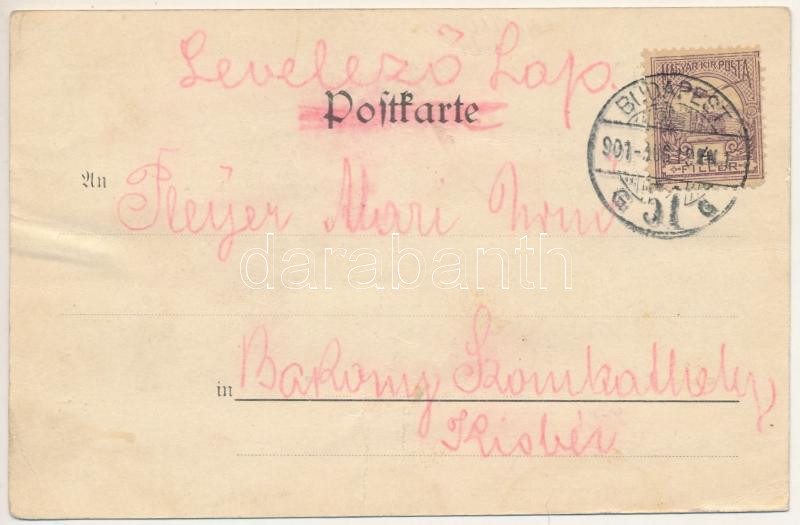 Levelező Lap.
Postkarte
MAGYAR KIR. POSTA
FILLÉR
BUDAPEST
901
51
An Pleyer Mari
darabanth
in Bakony Szombathely,
Kisbér